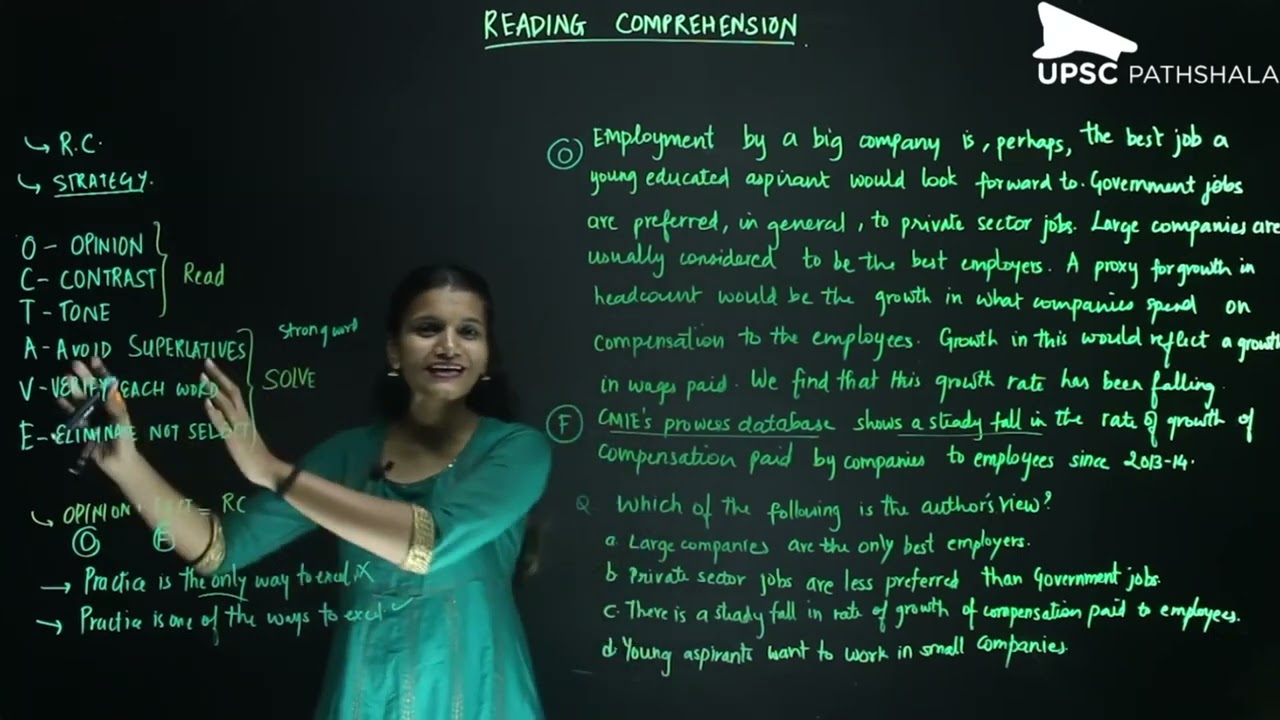 READING COMPREHENSION
UPSC PATHSHALA
R.C.
STRATEGY.
O - OPINION
C - CONTRAST
T - TONE
Read
A - AVOID SUPERLATIVES
V - VERIFY EACH WORD
E - ELIMINATE NOT SELECT
strong word
SOLVE
OPINION = RC
O F
Practice is the only way to excel. X
Practice is one of the ways to excel.
O Employment by a big company is, perhaps, the best job a
young educated aspirant would look forward to. Government jobs
are preferred, in general, to private sector jobs. Large companies are
usually considered to be the best employers. A proxy for growth in
headcount would be the growth in what companies spend on
compensation to the employees. Growth in this would reflect a growth
in wages paid. We find that this growth rate has been falling.
F CMIE's prowess database shows a steady fall in the rate of growth of
compensation paid by companies to employees since 2013-14.
Q Which of the following is the author's view?
a. Large companies are the only best employers.
b. Private sector jobs are less preferred than Government jobs.
c. There is a steady fall in rate of growth of compensation paid to employees.
d. Young aspirants want to work in small companies.